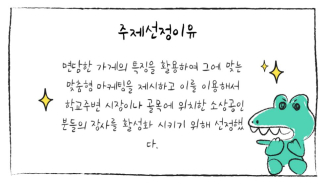 주제선정이유
면담한 가게의 특징을 활용하여 그에 맞는
맞춤형 마케팅을 제시하고 이를 이용해서
학교주변 시장이나 골목에 위치한 소상공인
분들의 장사를 활성화 시키기 위해 선정했
다.